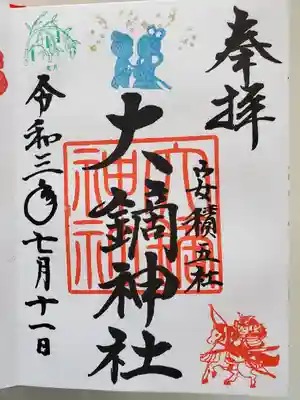 奉拝
安積五社
大鏑神社
令和三年七月十一日